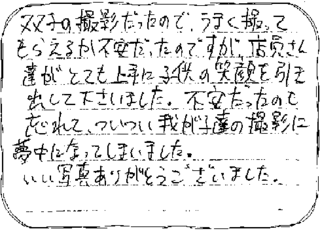 双子の撮影だったので、うまく撮って
もらえるか不安だったのですが、店員さん
達がとても上手に子供の笑顔を引き
出して下さいました。不安だったのも
忘れて、ついつい我が子達の撮影に
夢中になってしまいました。
いい写真ありがとうございました。